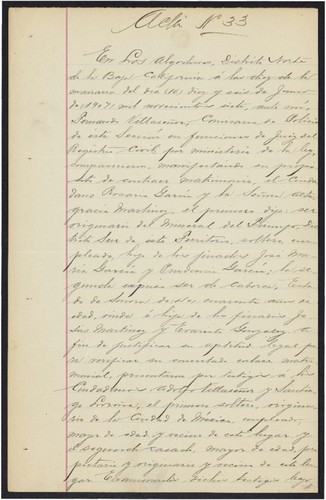 Acta Nº 33
En Los Algodones, Distrito Norte
de la Baja California á las diez de la
mañana del dia (16) diez y seis de
1907) mil novecientos siete, ante mí,
Fernando Villaseñor, Comisario de Policia
de esta Sección en funciones de Juez del
Registro Civil por ministerio de la ley
comparecieron, manifestando su propó-
sito de contraer matrimonio, el Ciuda-
dano Rosario García y la Señora
gracia Martinez, el primero dijo: ser
originario del Mineral del Triunfo, Dis-
trito Sur de este Territorio, soltero em-
pleado, hijo de los finados José Ma-
ria García y García; la se-
gunda expuso ser de Caborca, Esta-
do de Sonora de cuarenta años de
edad, viuda é hija de los finados Je-
sus Martinez y Gonzalez. A
fin de justificar su aptitud legal pa-
ra verificar su enlace matri-
monial, presentaron por testigos á los
Ciudadanos Adolfo Villaseñor y Santia-
go, el primero soltero, origina-
rio de la Ciudad de Mexico, empleado,
mayor de edad y vecino de este lugar y
el segundo casado, mayor de edad, pro-
pietario y originario y vecino de este lu-
gar. Examinados dichos testigos